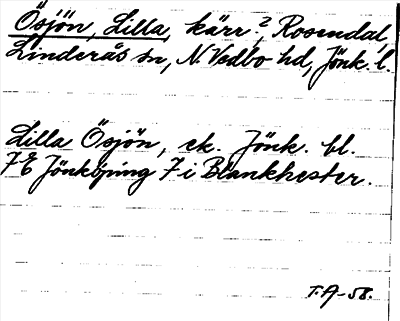 Ösjön, Lilla, kärr?, Rosendal,
Linderås sn, N Vedbo hd, Jönk. l.
Lilla Ösjön, ek. Jönk. bl.
7E Jönköping 7 i Blankhester.
T.A-58.